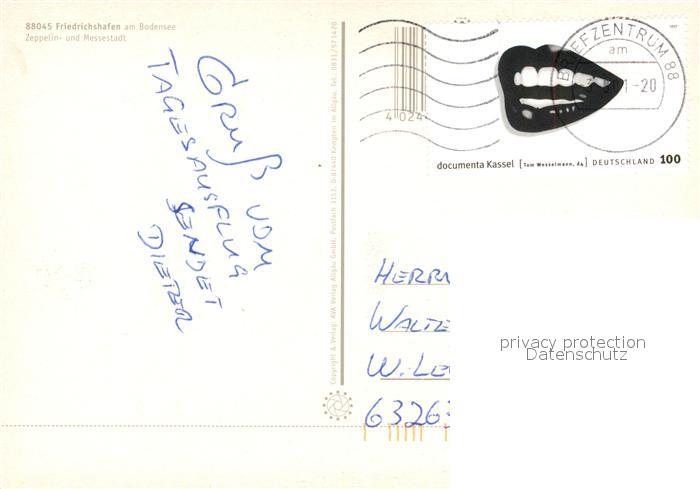 88045 Friedrichshafen am Bodensee
Zeppelin- und Messestadt
Gruß vom
Tagesausflug
sendet
Dieter
Copyright & Verlag: AVA Verlag Allgäu GmbH, Postfach 3153, D-87440 Kempten im Allgäu, Tel. 0831/571420
4 024
documenta Kassel [Tom Wesselmann, d4] DEUTSCHLAND 100
1997
BRIEFZENTRUM 88
am
1-20
Herrn
Walte
W.-Le
63263
privacy protection
Datenschutz